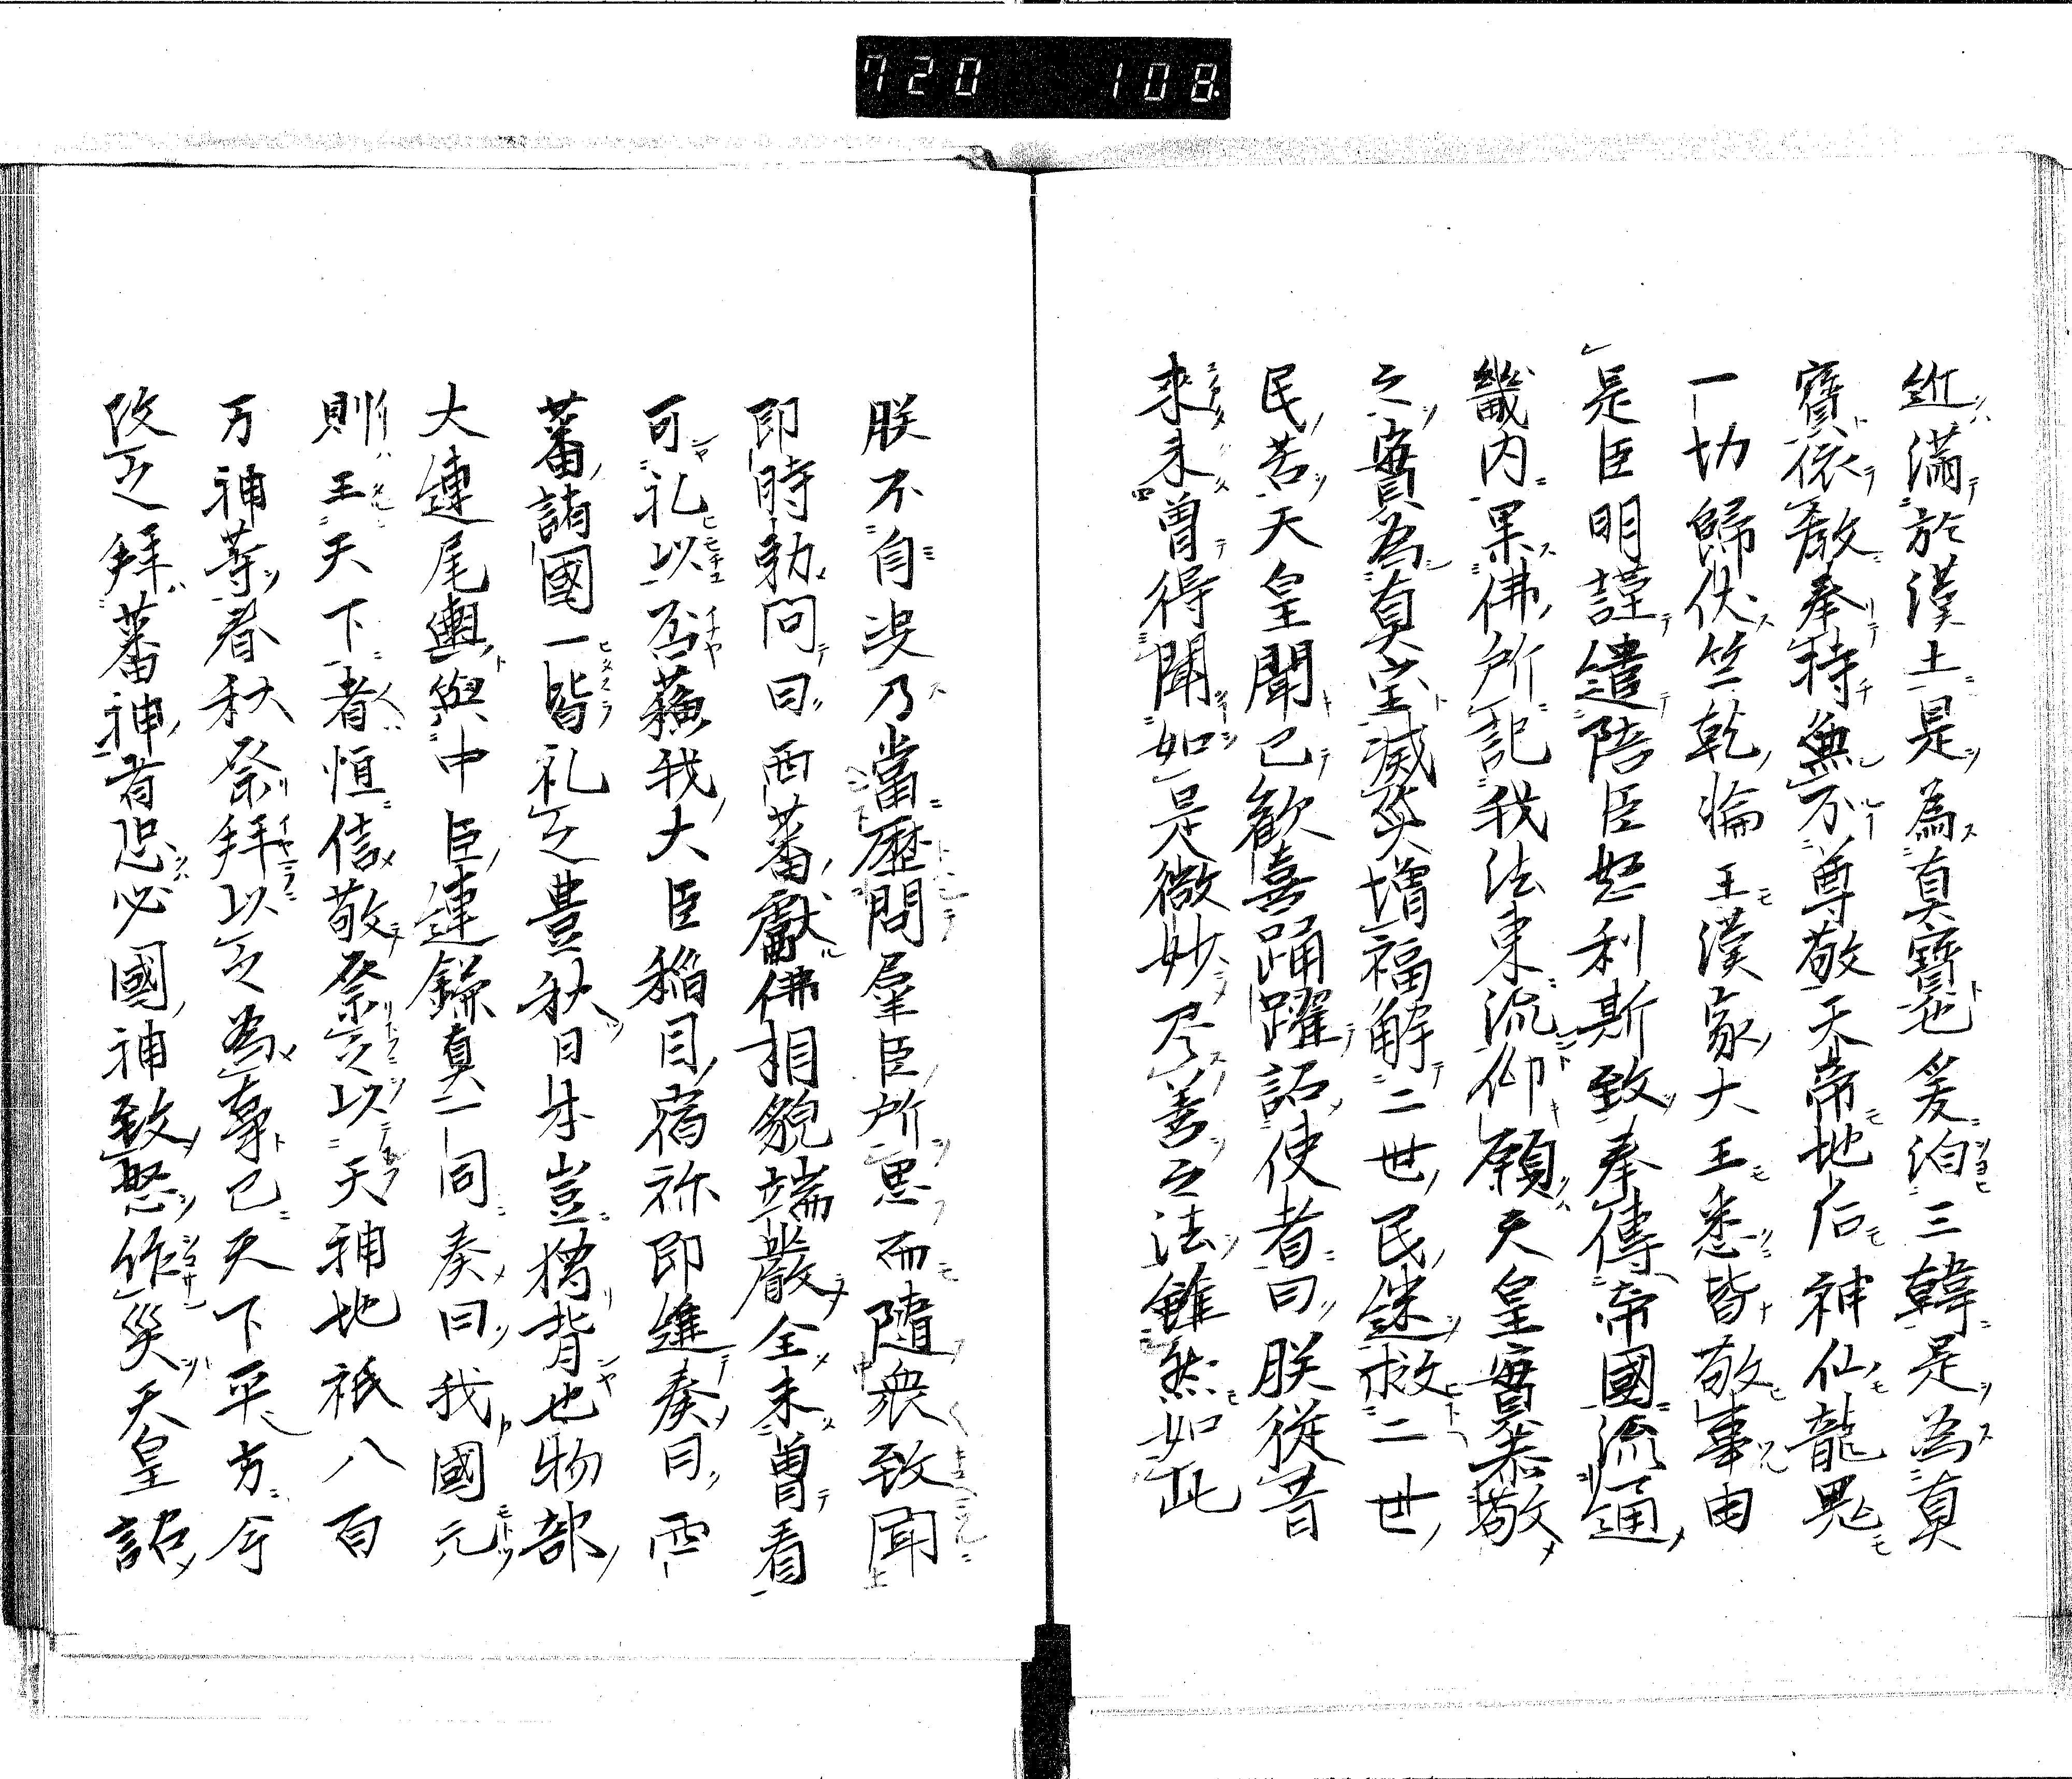 720 108
近満於漢土是為真寶也爰洎三韓是為真
寶依教奉持無不尊敬天帝地后神仙龍鬼
一切歸伏竺乾輪王漢家大王悉皆敬事由
是臣明謹遣陪臣怒利斯致奉傳帝國流通
畿内果佛所記我法東流仰願天皇實恭敬
之實為真宝滅災増福解二世民迷救二世
民苦天皇聞已歓喜踊躍詔使者曰朕従昔
来未曽得聞如是微妙尽善之法雖然如此
朕不自决乃當歴問群臣所思而随衆致聞
即時勅問曰西蕃獻佛相貌端嚴全未曽看
可礼以否蘓我大臣稲目宿祢即進奏曰西
蕃諸國一皆礼之豊秋日本豈獨背也物部
大連尾輿與中臣連鎌真一同奏曰我國元
則王天下者恒信敬祭之以天神地祇八百
万神等春秋祭拝以之為事已天下平方今
改之拝蕃神者恐必國神致怒作災天皇詔